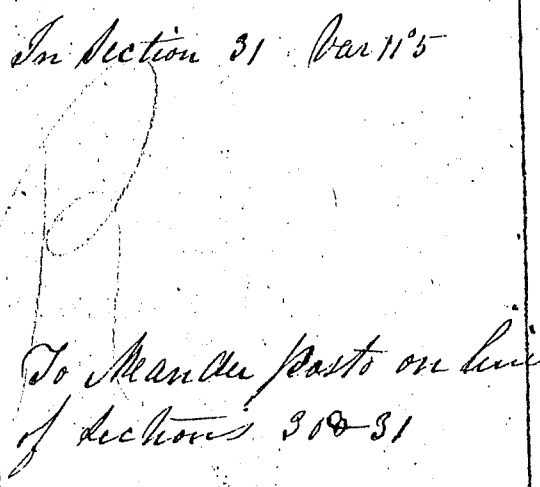 In Section 31 Var 11°5
To Meander posts on line
of Sections 30 & 31